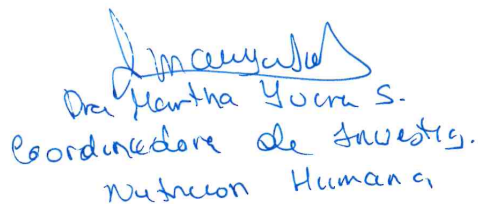 Dra Martha Yucra S.
Coordinadora de Investig.
Nutricion Humana